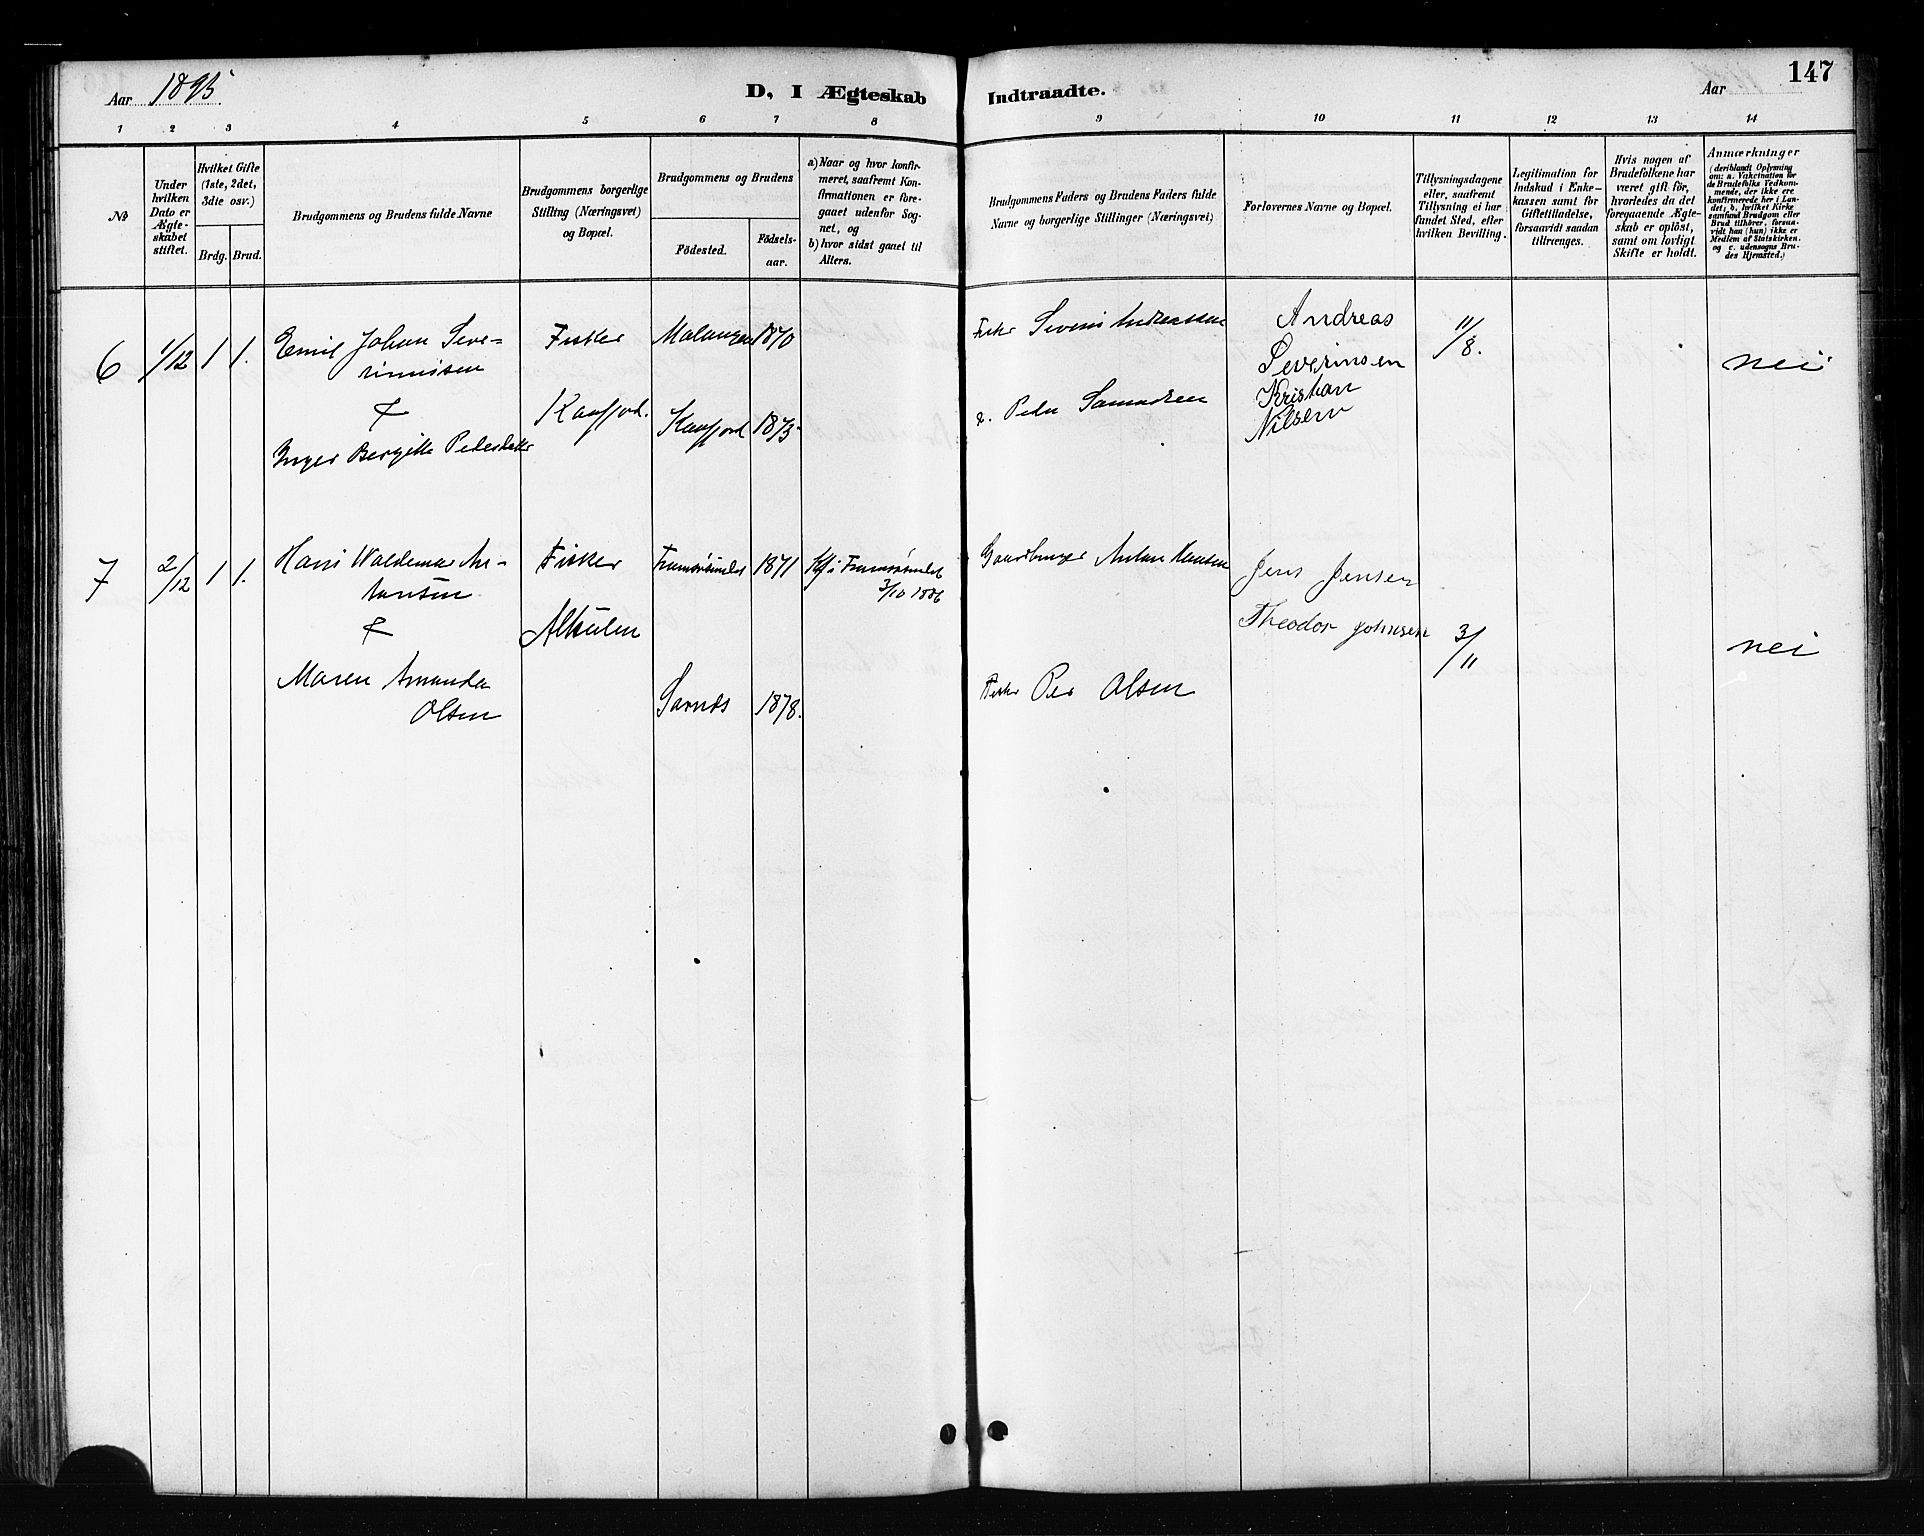 Aar 1895
D, I Ægteskab Indtraadte.
Aar
147
1 2 3 4 5 6 7 8 9 10 11 12 13 14
No
Under hvilken Dato er Ægte-skabet stiftet.
Hvilket Gifte (1ste, 2det, 3die osv.)
Brdg.
Brud.
Brudgommens og Brudens fulde Navne
Brudgommens borgerlige Stilling (Næringsvei) og Bopæl.
Brudgommens og Brudens
Födested.
Födsels-aar.
a) Naar og hvor konfir-meret, saafremt Kon-firmationen er fore-gaaet udenfor Sog-net, og
b) hvor sidst gaaet til Alters.
Brudgommens Faders og Brudens Faders fulde Navne og borgerlige Stillinger (Næringsvei)
Forlovernes Navne og Bopæl.
Tillysningsdagene eller, saafremt Tillysning ei har fundet Sted, efter hvilken Bevilling.
Legitimation for Indskud i Enke-kassen samt for Giftetilladelse, forsaavidt saadan tiltrænges.
Hvis nogen af Brudefolkene har været gift för, hvorledes da det foregaaende Ægte-skab er oplöst, samt om lovligt Skifte er holdt.
Anmærkninger
(deriblandt Oplysning om: a. Vakcination for de Brudefolks Vedkom-mende, der ikke ere konfirmerede her i Lan-det; b. hvilket Kirke samfund Brudgom eller Brud tilhörer, forsaa-vidt han (hun) ikke er Medlem af Statskirken. og c. udensogns Bru-des Hjemsted.)
6 1/12 1 1. Emil Johan Seve- Fisker Malangen 1870 Fisker Severin Andreassen Andreas 11/8. nei
rinnisen Severinsen
& Kaafjord. Kaafjord 1875 Peder Samuelsen Kristian
Inger Bergitte Pedersdatter Nilsen
7 2/12 1 1. Hans Waldemar An- Fisker Tromsøsundet 1871 Kf i Tromsøsundet Gaardbruger Anton Hansen Jens Jensen
tonsen 3/10 1886
& Alteulen Theodor Johnsen 3/11 nei
Maren Amanda Fisker Per Olsen
Olsen Sarnes 1878.